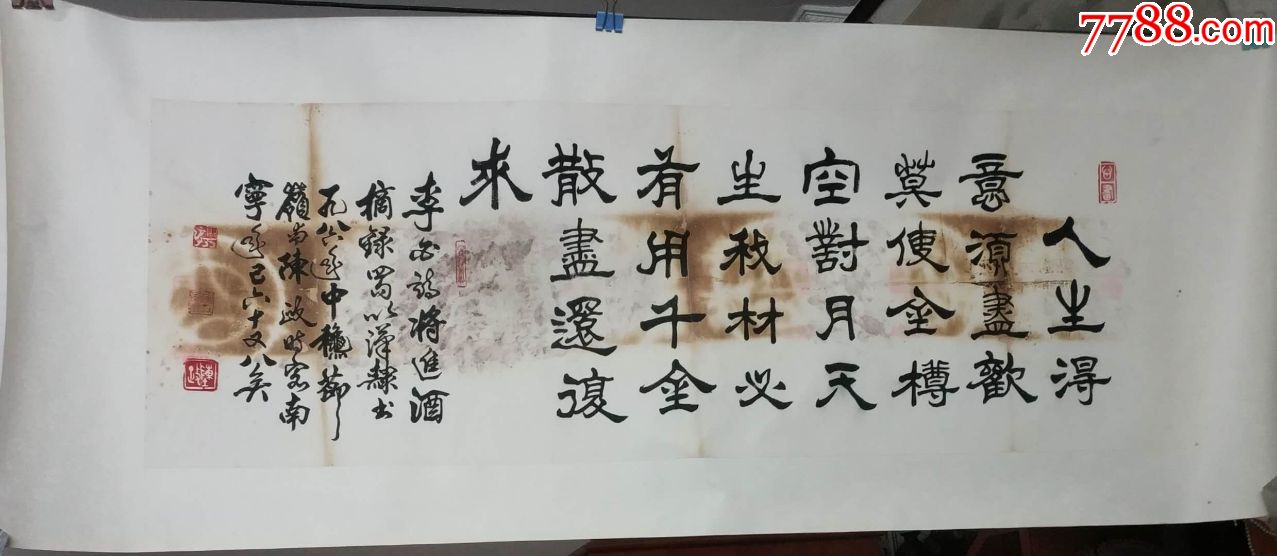 人生得
意須盡歡
莫使金樽
空對月天
生我材必
有用千金
散盡還復
來
李白詩將進酒
摘錄蜀以漢隸書
九八六年中秋節
嶺南陳政時客南
寧年已六十又八矣
7788.com